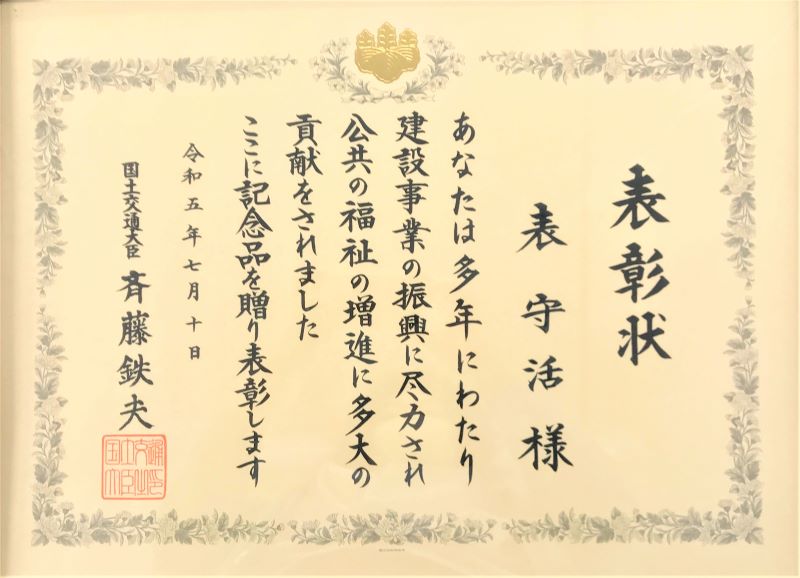 表彰状
表守活様
あなたは多年にわたり
建設事業の振興に尽力され
公共の福祉の増進に多大の
貢献をされました
ここに記念品を贈り表彰します
令和五年七月十日
国土交通大臣 斉藤鉄夫